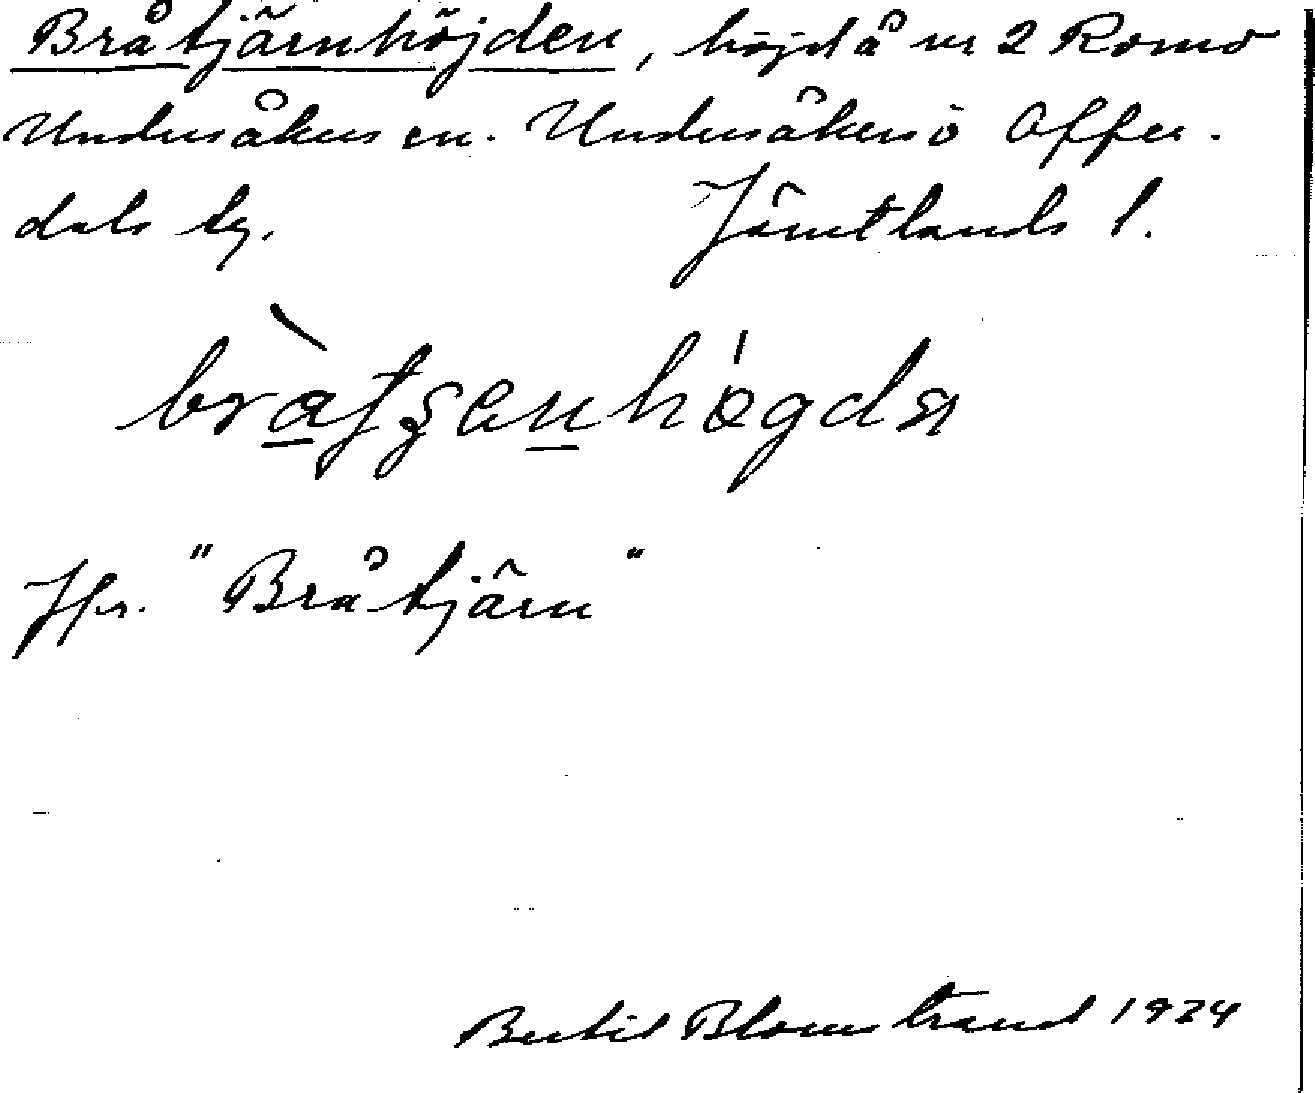 Bråtjärnhöjden, höjd å nr 2 Romo
Undersåkers sn. Undersåkers o Offer-
dals tg. Jämtlands l.
Jfr. "Bråtjärn"
Bertil Blomstrand 1924